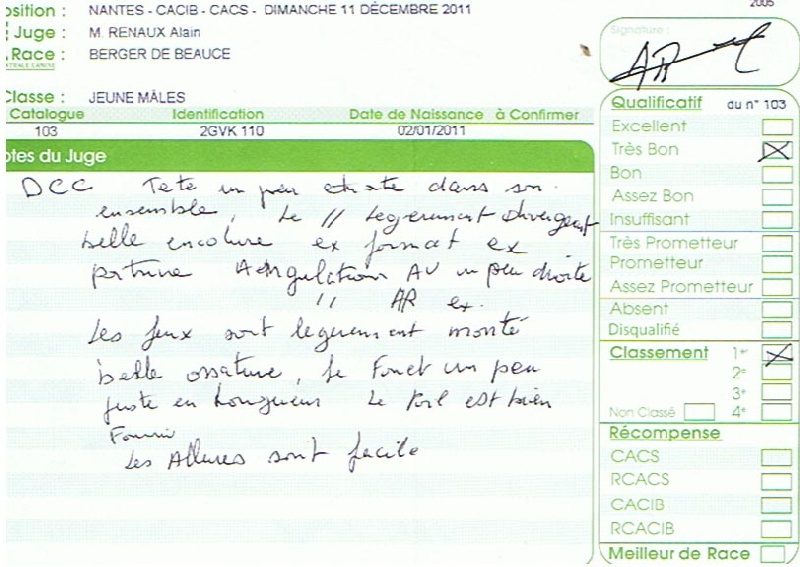 2005
osition : NANTES - CACIB - CACS - DIMANCHE 11 DÉCEMBRE 2011
Juge : M. RENAUX Alain
Race : BERGER DE BEAUCE
Classe : JEUNE MÂLES
Catalogue Identification Date de Naissance à Confirmer
103 2GVK 110 02/01/2011
otes du Juge
DCC Tete un peu etroite dans son
ensemble, Le // Legerement divergent
belle encolure ex format ex
poitrine Angulation AV un peu droite
// AR ex.
Les feux sont legerement monté
belle ossature, le Fouet un peu
juste en Longueur Le Poil est bien
Fourni
Les Allures sont facile
Signature :
AR
Qualificatif du n° 103
Excellent
Très Bon
Bon
Assez Bon
Insuffisant
Très Prometteur
Prometteur
Assez Prometteur
Absent
Disqualifié
Classement 1er
2e
3e
Non Classé 4e
Récompense
CACS
RCACS
CACIB
RCACIB
Meilleur de Race